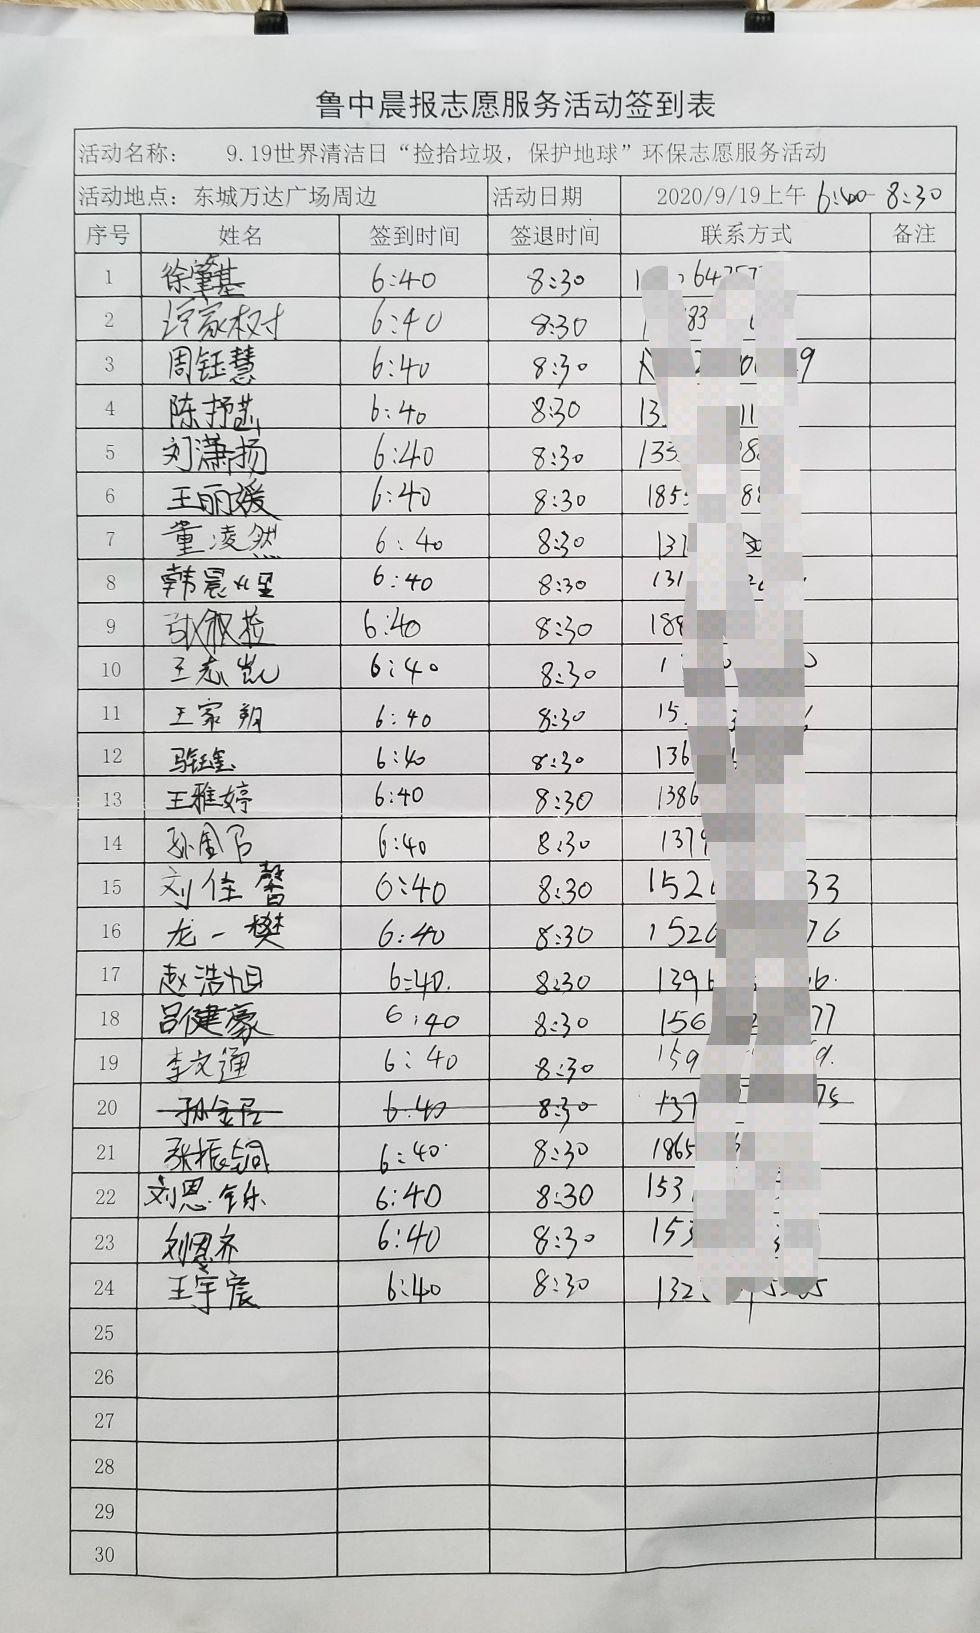 鲁中晨报志愿服务活动签到表
活动名称： 9.19世界清洁日“捡拾垃圾，保护地球”环保志愿服务活动
活动地点：东城万达广场周边 活动日期 2020/9/19上午 6:40-8:30
序号 姓名 签到时间 签退时间 联系方式 备注
1 徐肇基 6:40 8:30
2 6:40 8:30
3 周钰慧 6:40 8:30
4 陈抒菡 6:40 8:30
5 刘潇扬 6:40 8:30 133
6 王丽媛 6:40 8:30 185
7 董凌然 6:40 8:30 131
8 韩晨煋 6:40 8:30 131
9 6:40 8:30 188
10 王志凯 6:40 8:30
11 王家朔 6:40 8:30 15
12 6:40 8:30 136
13 王雅婷 6:40 8:30 1386
14 6:40 8:30 1379
15 刘佳馨 6:40 8:30 152 33
16 龙一樊 6:40 8:30 1526 76
17 赵浩旭 6:40. 8:30 1396 6.
18 吕健豪 6:40 8:30 156 77
19 李文通 6:40 8:30 159 9.
20 6:40 8:30 137 75
21 张振铜 6:40 8:30 1865
22 刘恩乐 6:40 8:30 153
23 刘恩齐 6:40 8:30 153
24 王宇宸 6:40 8:30 132
25
26
27
28
29
30